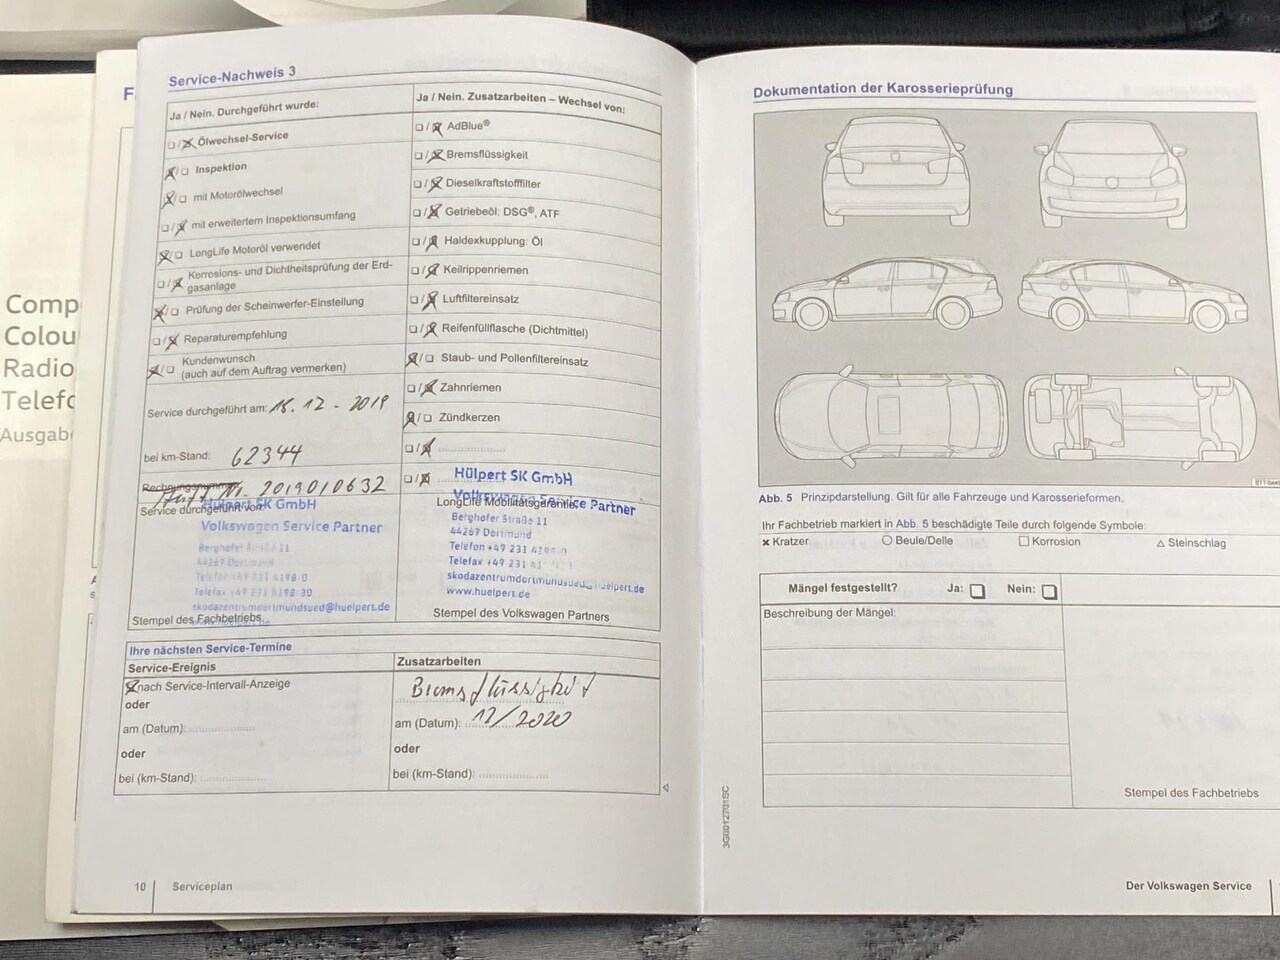 Comp
Colou
Radio
Telefo
Ausgab
F
Service-Nachweis 3
Ja / Nein. Durchgeführt wurde:
❑ / ❑ Ölwechsel-Service
❑ / ❑ Inspektion
❑ / ❑ mit Motorölwechsel
❑ / ❑ mit erweitertem Inspektionsumfang
❑ / ❑ LongLife Motoröl verwendet
❑ / ❑ Korrosions- und Dichtheitsprüfung der Erd-
gasanlage
❑ / ❑ Prüfung der Scheinwerfer-Einstellung
❑ / ❑ Reparaturempfehlung
❑ / ❑ Kundenwunsch
(auch auf dem Auftrag vermerken)
Service durchgeführt am: 18.12-2019
bei km-Stand: 62344
Rechnungsnummer
Auft Nr. 2019010632
Service durchgeführt von:
Hülpert SK GmbH
Volkswagen Service Partner
Berghofer Straße 11
44267 Dortmund
Telefon +49 231 4198-0
Telefax +49 231 4198-30
skodazentrumdortmundsued@huelpert.de
Stempel des Fachbetriebs
Ja / Nein. Zusatzarbeiten – Wechsel von:
❑ / ❑ AdBlue®
❑ / ❑ Bremsflüssigkeit
❑ / ❑ Dieselkraftstofffilter
❑ / ❑ Getriebeöl: DSG®, ATF
❑ / ❑ Haldexkupplung: Öl
❑ / ❑ Keilrippenriemen
❑ / ❑ Luftfiltereinsatz
❑ / ❑ Reifenfüllflasche (Dichtmittel)
❑ / ❑ Staub- und Pollenfiltereinsatz
❑ / ❑ Zahnriemen
❑ / ❑ Zündkerzen
❑ / ❑
❑ / ❑
Hülpert SK GmbH
Volkswagen Service Partner
LongLife Mobilitätsgarantie
Berghofer Straße 11
44267 Dortmund
Telefon +49 231
Telefax +49 231
skodazentrumdortmundsued@huelpert.de
www.huelpert.de
Stempel des Volkswagen Partners
Ihre nächsten Service-Termine
Service-Ereignis
❑ nach Service-Intervall-Anzeige
oder
am (Datum):
oder
bei (km-Stand):
Zusatzarbeiten
Bremsflüssigkeit
am (Datum): 12/2020
oder
bei (km-Stand):
10 Serviceplan
Dokumentation der Karosserieprüfung
Abb. 5 Prinzipdarstellung. Gilt für alle Fahrzeuge und Karosserieformen.
Ihr Fachbetrieb markiert in Abb. 5 beschädigte Teile durch folgende Symbole:
× Kratzer ○ Beule/Delle □ Korrosion △ Steinschlag
Mängel festgestellt? Ja: ❑ Nein: ❑
Beschreibung der Mängel:
Stempel des Fachbetriebs
3G0012701SC
Der Volkswagen Service